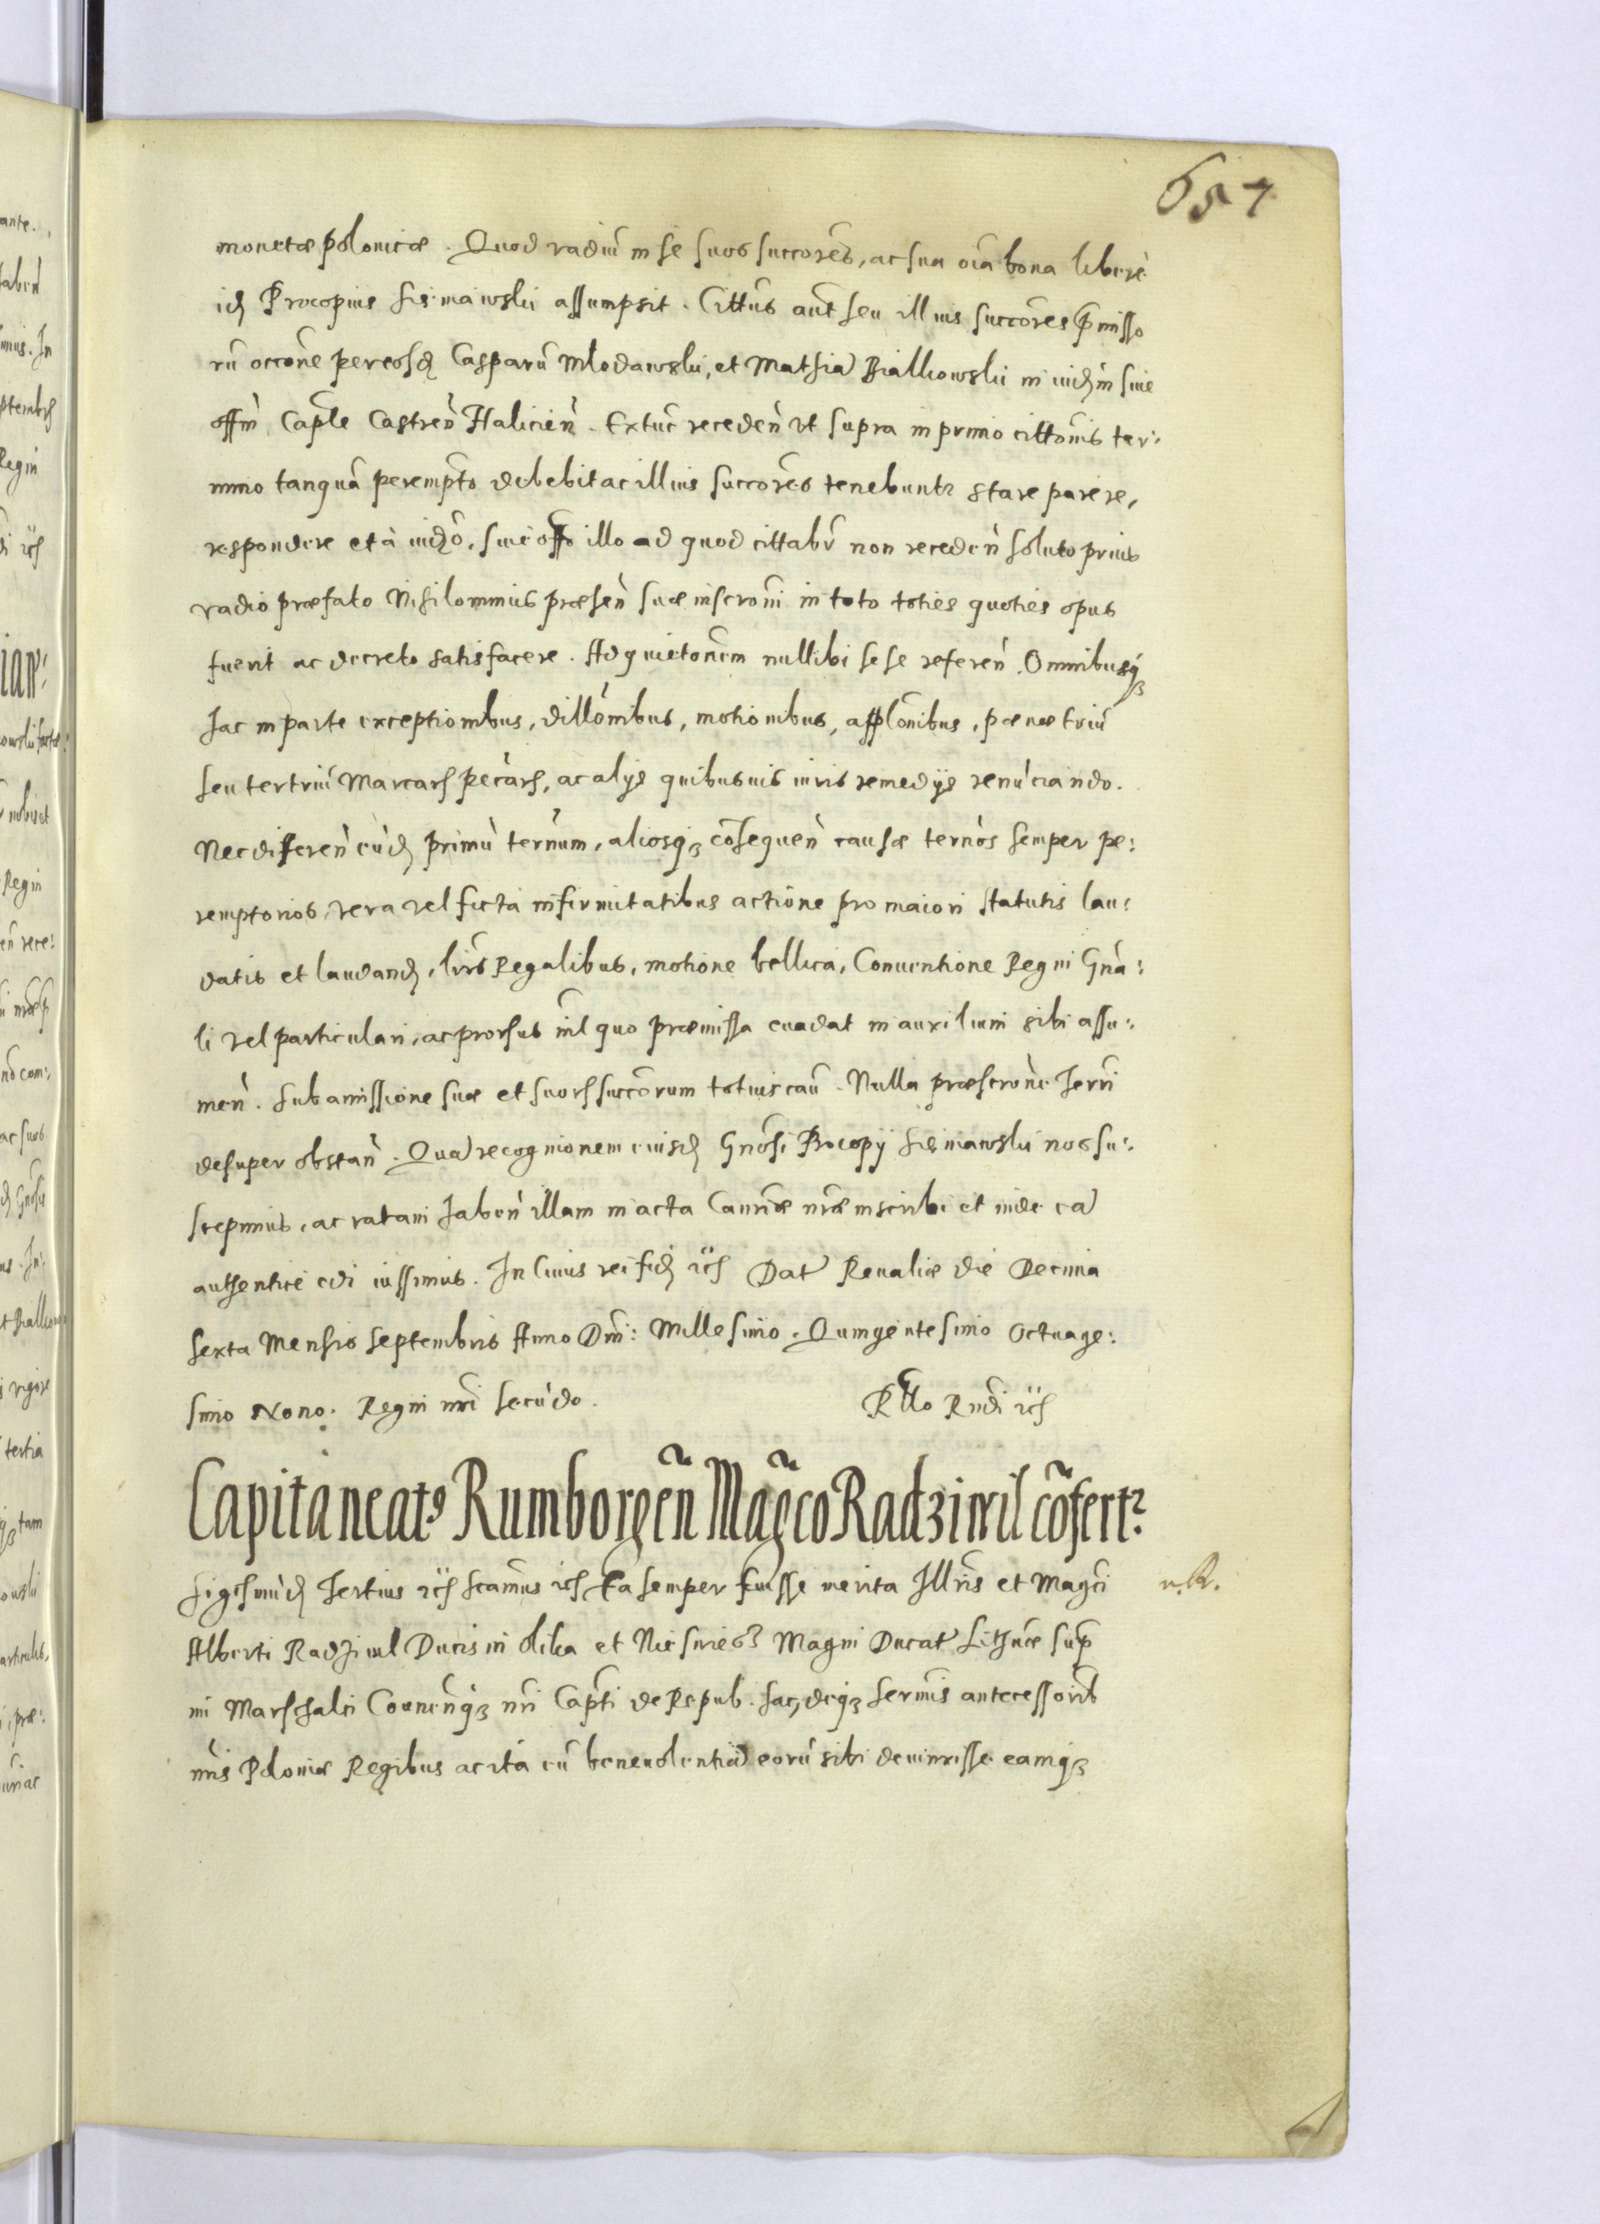 657
monetæ polonicæ. Quod vadiu in se suos succores, ac sua oia bona libere
id Procopius assumpsit. Cittus aut seu illius succores pmisso
ru occone per eosd Casparu Mlodawski, et Mathia Bialkowski in iudm siue
offm Caple Castren Halicien. Extuc receden vt supra in primo cittonis ter:
mino tanqua perempto debebit ac illius succores tenebuntr stare parere,
respondere et à iudo, siue offo illo ad quod cittabr non receden soluto prius
vadio præfato Nihilominus præsen suæ inscroni in toto toties quoties opus
fuerit ac decreto satisfacere. Ad quietonem nullibi sese referen. Omnibusq3
hac in parte exceptionibus, dillonibus, motionibus, applonibus, pœnæ triu
seu tertriu Marcar pecar, ac alijs quibusuis iuris remedijs renuciando.
Nec differen eud primu ternum, aliosq3 cosequen causæ ternos semper pe:
remptorios, vera vel ficta infirmitatibus actione pro maiori statutis lau:
datis et laudand, lris Regalibus, motione bellica, Conuentione Regni Gna:
li vel particulari, ac prorsus nil quo præmissa euadat in auxilium sibi assu:
men. Sub amissione suæ et suor succorum totius cau. Nulla præscrone terri
desuper obstan. Qua recognionem eiusd Gnosi Procopij nos su:
scepimus, ac ratam haben illam in acta Canriæ nræ inscribi et inde ea
authenticè edi iussimus. In Cuius rei fid rch Dat Reualiæ die Decima
sexta Mensis Septembris Anno Dni: Millesimo. Quingentesimo Octuage:
simo Nono. Regni nri secudo. Rtto Rndi rch
Capitaneat9 Rumborgen Magco Radziwil cofertr
Sigismud Tertius rch scamus rch Ea semper fuisse merita Illris et Magci
n. R.
Alberti Radziwil Ducis in Olika et Niesuies3 Magni Ducat Lithuæ sup
mi Marschalci Couuenq3 nri Capti de Repub. hac, deq3 sermis antecessorib
nris Poloniæ Regibus ac ita eu beneuolentia eoru sibi deuinxisse eamq3